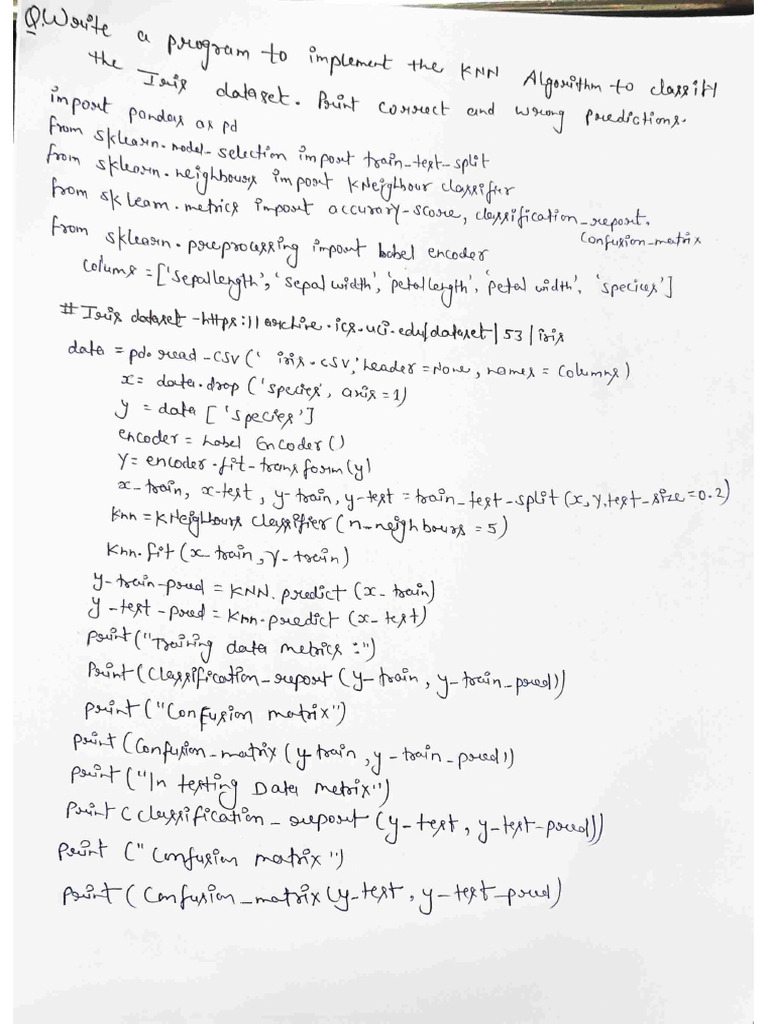 Q. Write a program to implement the KNN Algorithm to classify
the Iris dataset. Print correct and wrong predictions.
import pandas as pd
from sklearn.model_selection import train_test_split
from sklearn.neighbours import KNeighbour classifier
from sklearn.metrics import accurary_score, classification_report.
confusion_matrix
from sklearn.preprocessing import label encoder
colums = ['sepal length', 'sepal width', 'petal length', 'petal width', 'species']
# Iris dataset - https://archive.ics.uci.edu/dataset/53/iris
data = pd.read_csv('iris.csv', header = None, names = columns)
x = data.drop('species', axis = 1)
y = data ['species']
encoder = Label Encoder()
Y = encoder.fit_transform(y)
x_train, x_test, y_train, y_test = train_test_split(x, y, test_size = 0.2)
knn = KNeighbours classifier(n_neighbours = 5)
knn.fit(x_train, y_train)
y_train_pred = KNN.predict(x_train)
y_test_pred = Knn.predict(x_test)
print("Training data metrics :")
Print(classification_report(y_train, y_train_pred))
print("Confusion matrix")
print(Confusion_matrix(y train, y_train_pred))
print("In testing Data metrix")
Print(classification_report(y_test, y_test_pred))
print("Confusion matrix")
print(Confusion_matrix(y_test, y_test_pred)